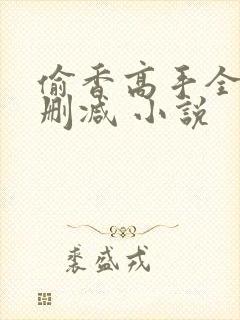 偷香高手全
删减 小說
裘盛戎